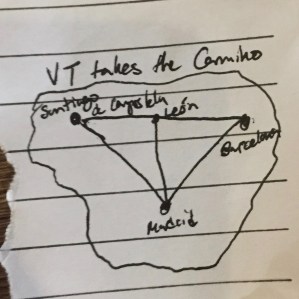 VT takes the Camino
Santiago de Compostela
León
Barcelona
Madrid